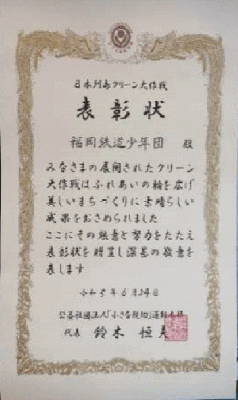 日本列島クリーン大作戦
表彰状
福岡鉄道少年団 殿
みなさまの展開されたクリーン
大作戦はふれあいの輪を広げ
美しいまちづくりに素晴らしい
成果をおさめられました
ここにその熱意と努力をたたえ
表彰状を贈呈し深甚の敬意を
表します
公益社団法人「小さな親切」運動本部
代表 鈴木 恒夫